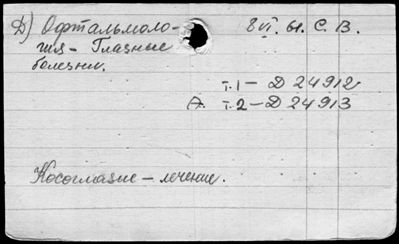 Д) Офтальмоло- 8 VI. 61. С. В.
гия - Глазные
болезни.
т. 1 - Д 24912
А. т. 2 - Д 24913
Косоглазие - лечение.